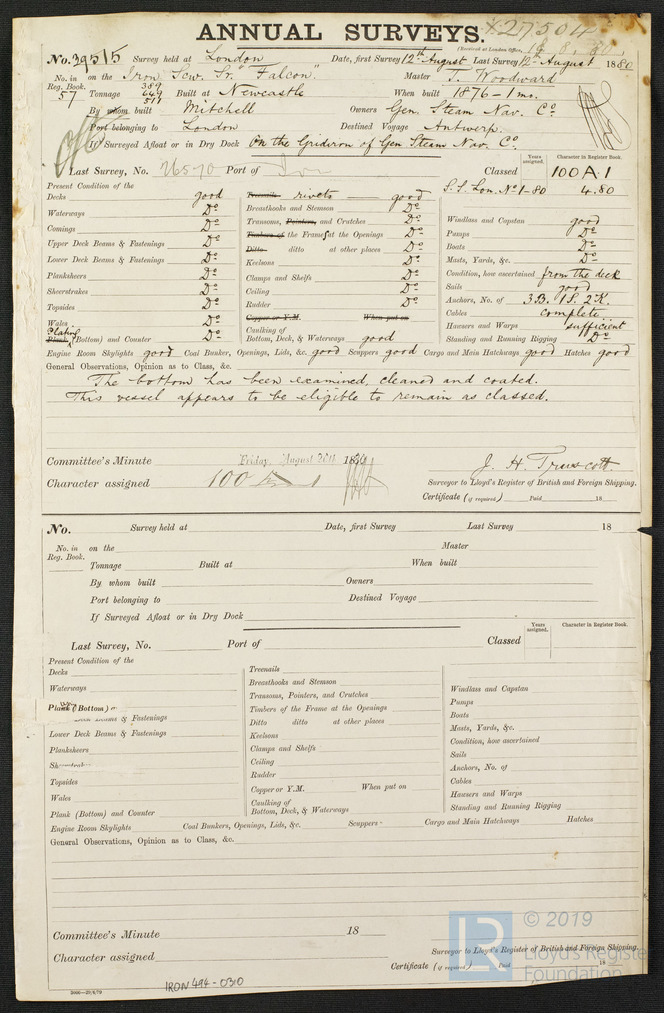 ANNUAL SURVEYS. *27504
(Received at London Office, 19. 8. 80.
No. 39515 Survey held at London Date, first Survey 12th August Last Survey 12th August 1880
No. in Reg. Book. 57 on the Iron Scw. Sr. "Falcon". Master T. Woodward
Tonnage 389 649 511 Built at Newcastle When built 1876 - 1 mo.
By whom built Mitchell Owners Gen. Steam Nav. Co.
Port belonging to London Destined Voyage Antwerp.
If Surveyed Afloat or in Dry Dock On the Gridiron of Gen Steam Nav. Co.
Years assigned. Character in Register Book.
Last Survey, No. 26570 Port of Lon Classed 100 A.1
S.S. Lon. No 1-80 4.80
Present Condition of the
Decks good
Waterways Do
Comings Do
Upper Deck Beams & Fastenings Do
Lower Deck Beams & Fastenings Do
Planksheers Do
Sheerstrakes Do
Topsides Do
Wales Do
Plating
Plank (Bottom) and Counter Do
Treenails rivets good
Breasthooks and Stemson Do
Transoms, Pointers, and Crutches Do
Timbers of the Frames at the Openings Do
Ditto ditto at other places Do
Keelsons Do
Clamps and Shelfs Do
Ceiling Do
Rudder Do
Copper or Y.M. When put on
Caulking of Bottom, Deck, & Waterways good
Windlass and Capstan good
Pumps Do
Boats Do
Masts, Yards, &c. Do
Condition, how ascertained from the deck
Sails good
Anchors, No. of 3 B. 1 S. 2 K.
Cables complete
Hawsers and Warps sufficient
Standing and Running Rigging Do
Engine Room Skylights good Coal Bunker, Openings, Lids, &c. good Scuppers good Cargo and Main Hatchways good Hatches good
General Observations, Opinion as to Class, &c.
The bottom has been examined, cleaned and coated.
This vessel appears to be eligible to remain as classed.
Committee's Minute Friday, August 20th 1880
Character assigned 100 A 1
J. H. Truscott
Surveyor to Lloyd's Register of British and Foreign Shipping.
Certificate (if required) Paid 18
No. Survey held at Date, first Survey Last Survey 18
No. in Reg. Book. on the Master
Tonnage Built at When built
By whom built Owners
Port belonging to Destined Voyage
If Surveyed Afloat or in Dry Dock
Years assigned. Character in Register Book.
Last Survey, No. Port of Classed
Present Condition of the
Decks
Waterways
Plank (Bottom)
Deck Beams & Fastenings
Lower Deck Beams & Fastenings
Planksheers
Sheerstrakes
Topsides
Wales
Plank (Bottom) and Counter
Treenails
Breasthooks and Stemson
Transoms, Pointers, and Crutches
Timbers of the Frame at the Openings
Ditto ditto at other places
Keelsons
Clamps and Shelfs
Ceiling
Rudder
Copper or Y.M. When put on
Caulking of Bottom, Deck, & Waterways
Windlass and Capstan
Pumps
Boats
Masts, Yards, &c.
Condition, how ascertained
Sails
Anchors, No. of
Cables
Hawsers and Warps
Standing and Running Rigging
Engine Room Skylights Coal Bunkers, Openings, Lids, &c. Scuppers Cargo and Main Hatchways Hatches
General Observations, Opinion as to Class, &c.
Committee's Minute 18
Character assigned
Surveyor to Lloyd's Register of British and Foreign Shipping.
Certificate (if required) Paid 18
2000—29/4/79
IRON 494-0310
LR © 2019
Lloyd's Register
Foundation